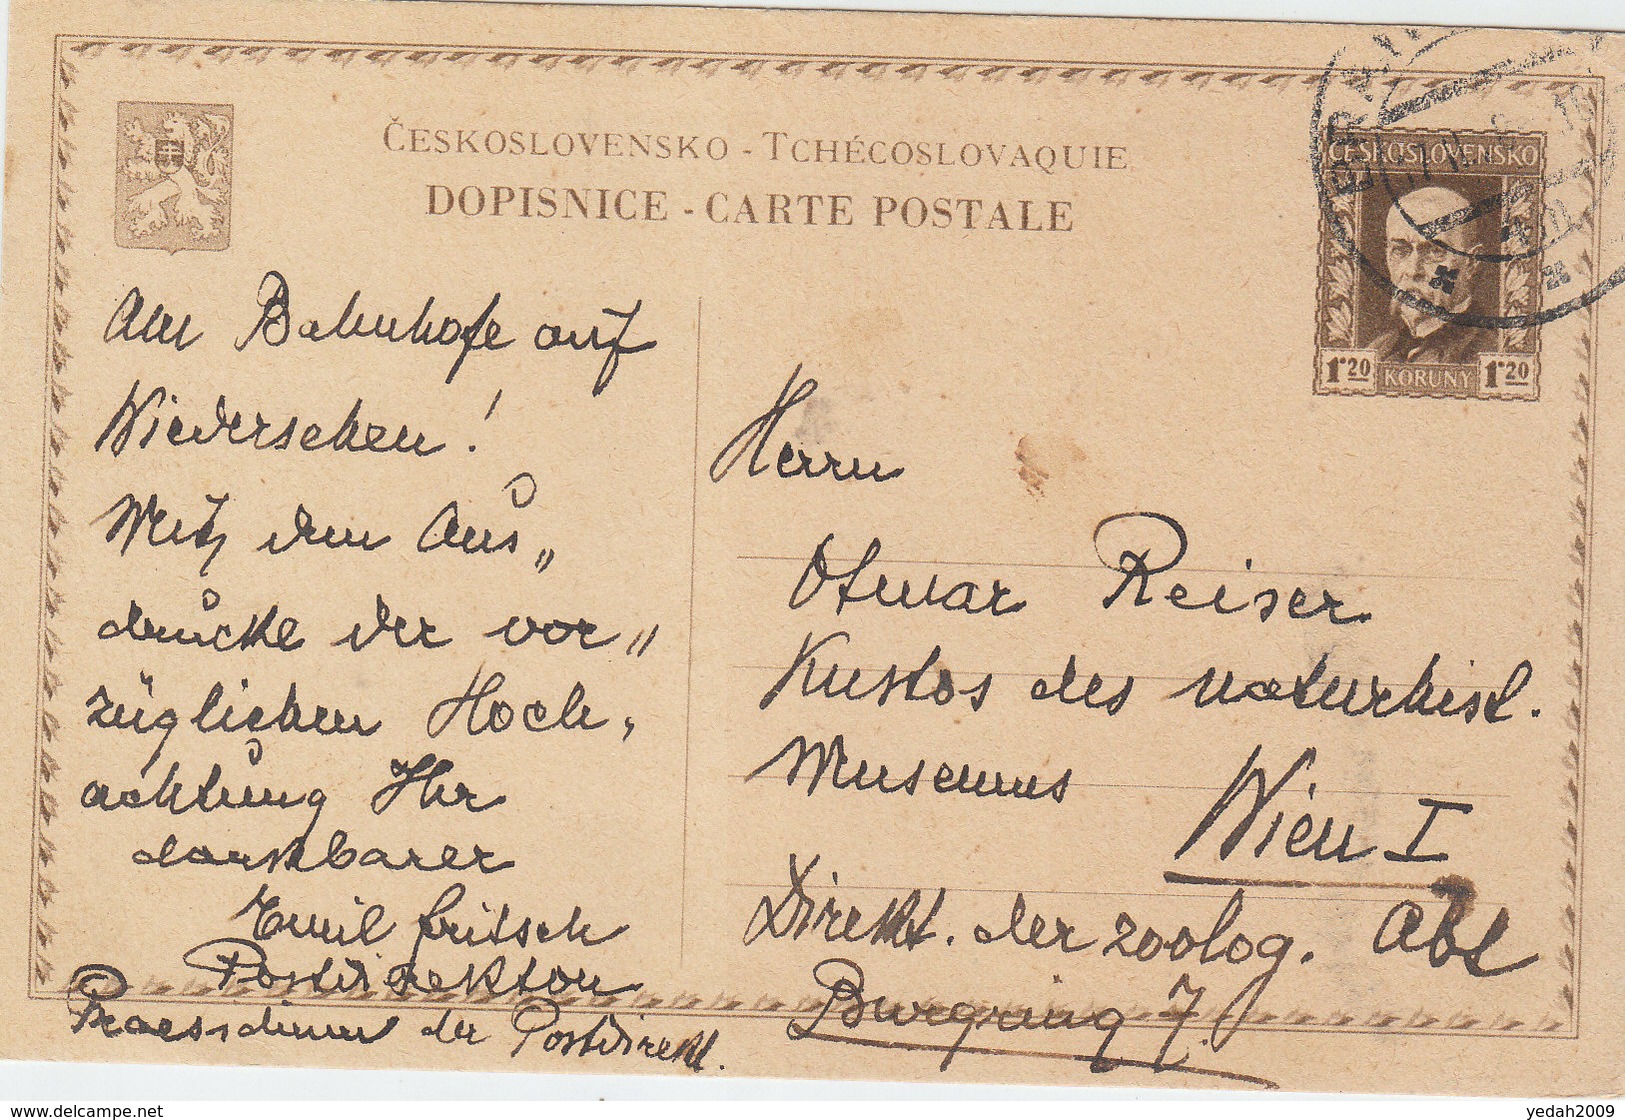 ČESKOSLOVENSKO - TCHÉCOSLOVAQUIE
DOPISNICE - CARTE POSTALE
ČESKOSLOVENSKO
1'20 KORUNY 1'20
Am Bahnhofe auf
Wiedersehen!
Mit dem Aus„
drucke der vor„
züglichen Hoch„
achtung Ihr
dankbarer
Emil Fritsch
Postdirektor
der Postdirekt.
Herrn
Otmar Reiser
Kustos des naturhist.
Museums
Wien I
Direkt. der zoolog. Abt
Burgring 7.
delcampe.net
yedah2009